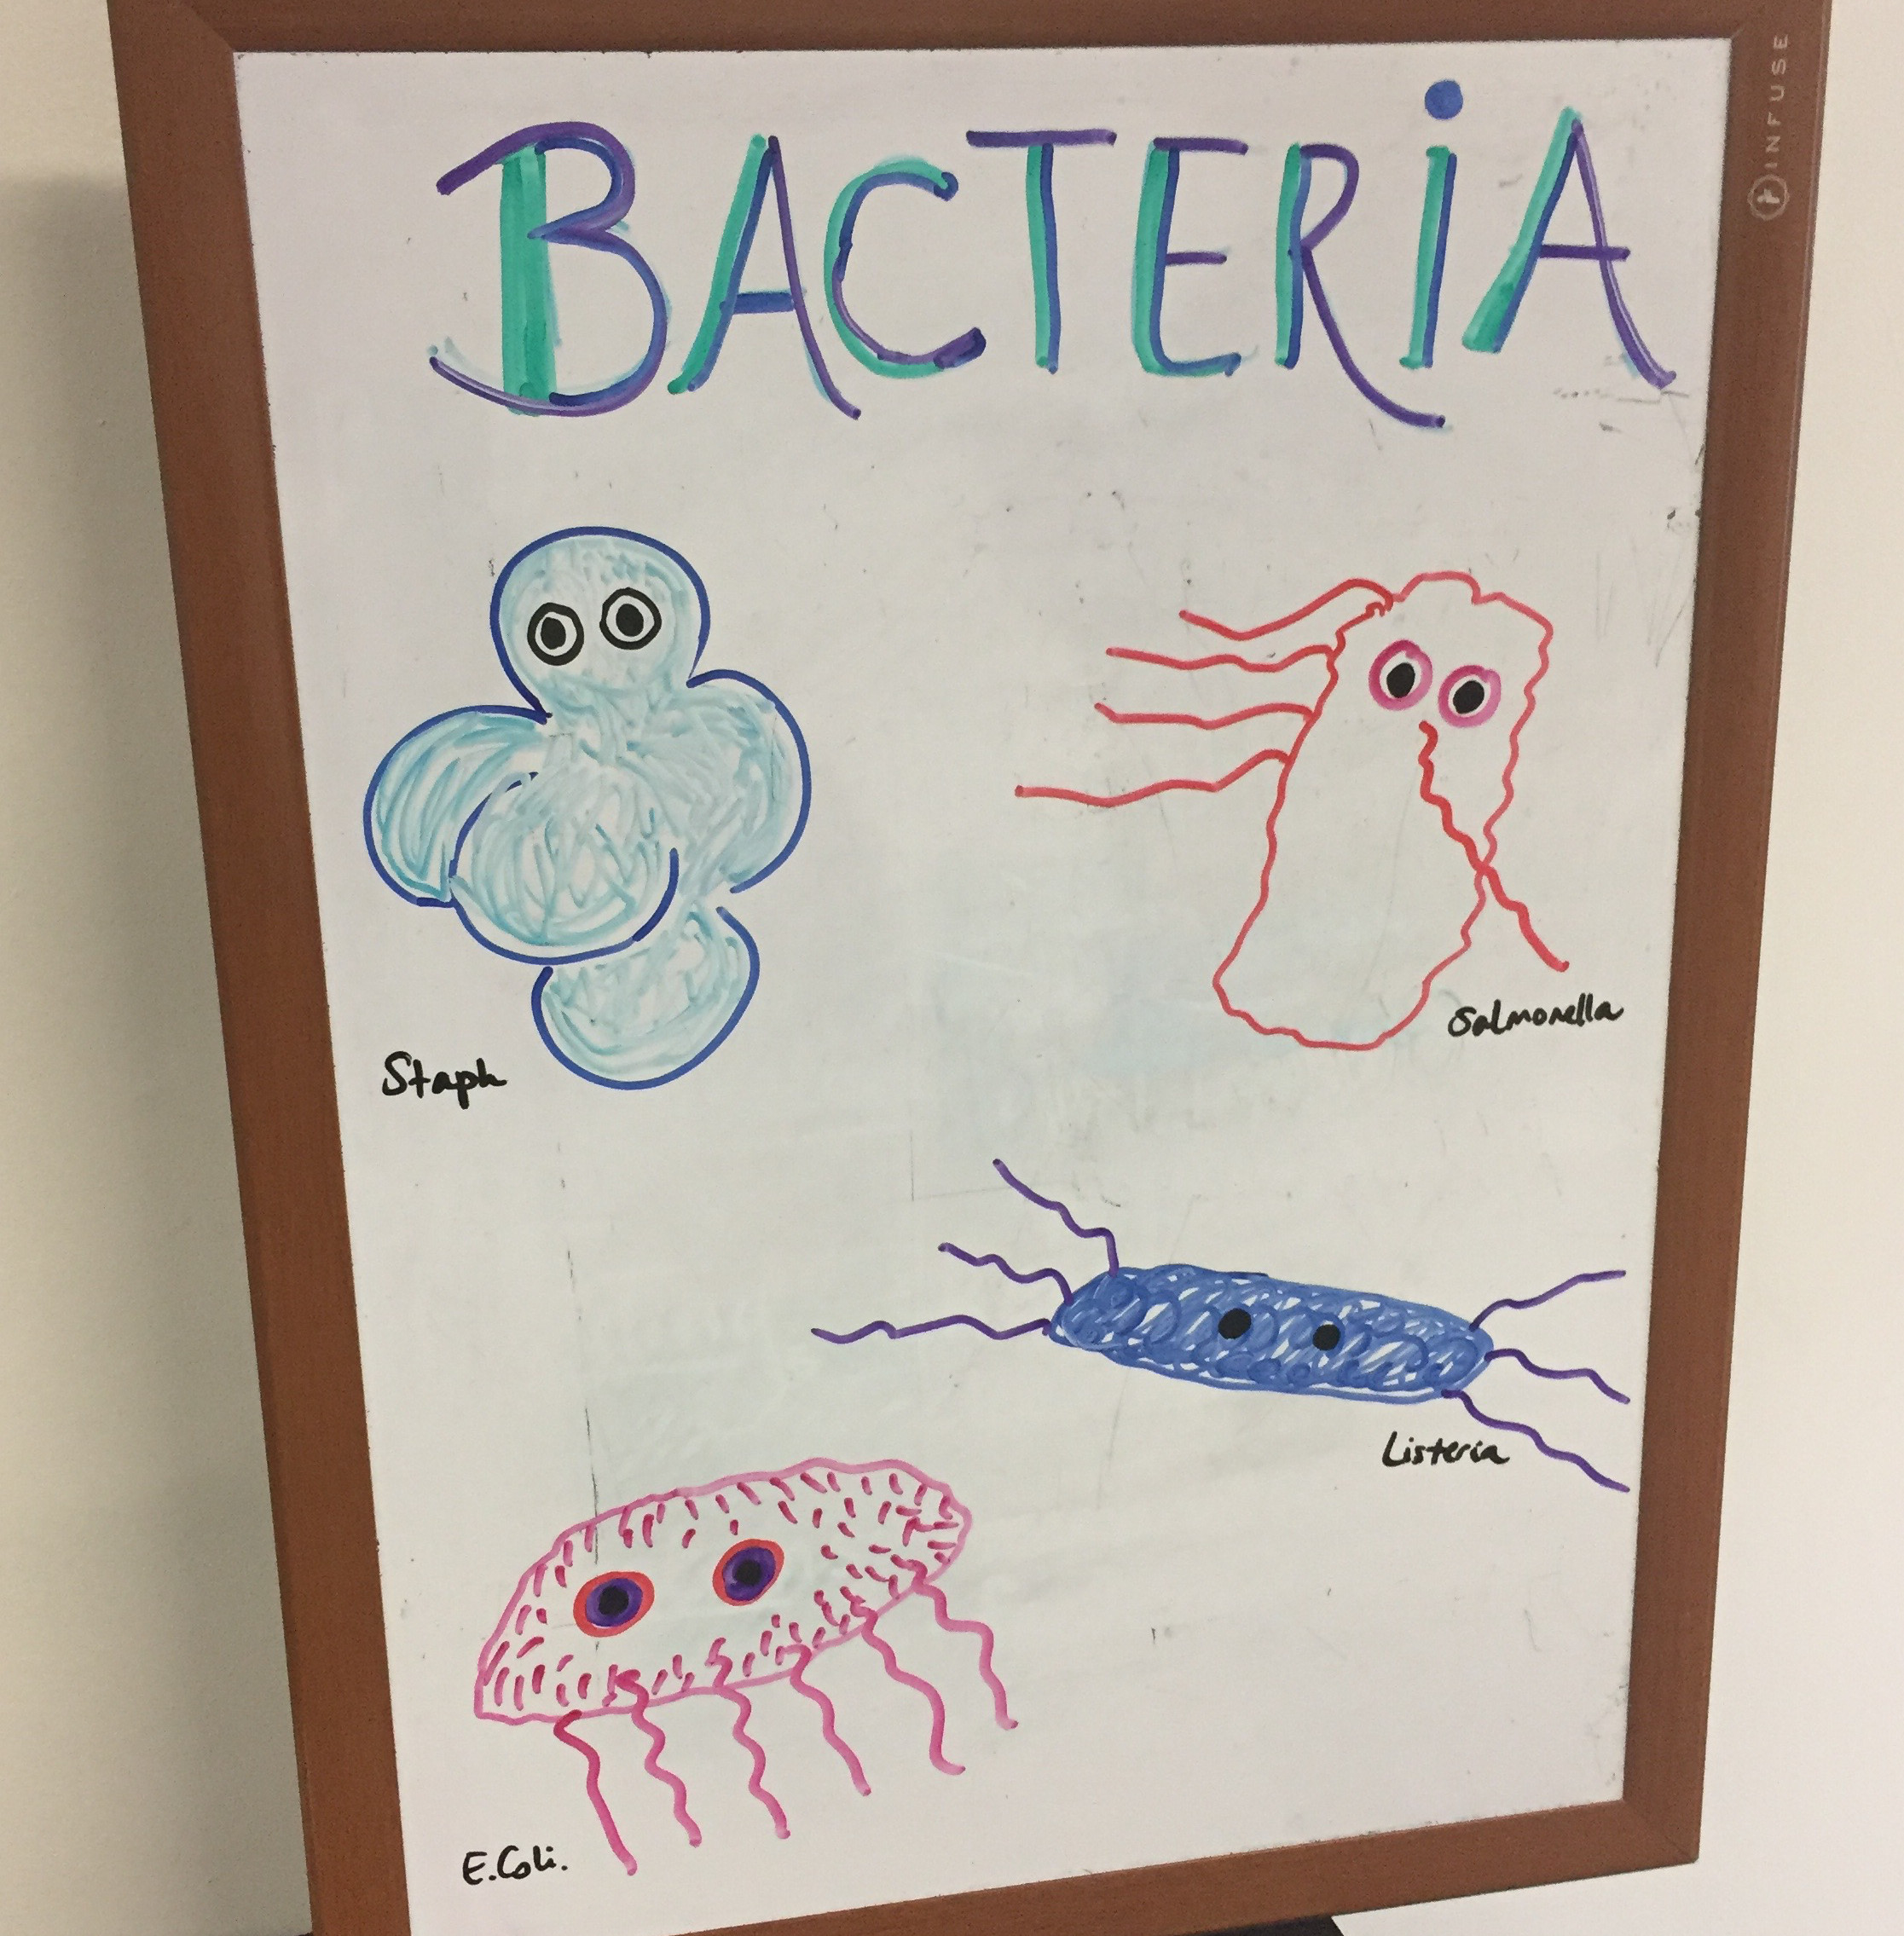 BACTERiA
INFUSE
Staph
Salmonella
Listeria
E.Coli.